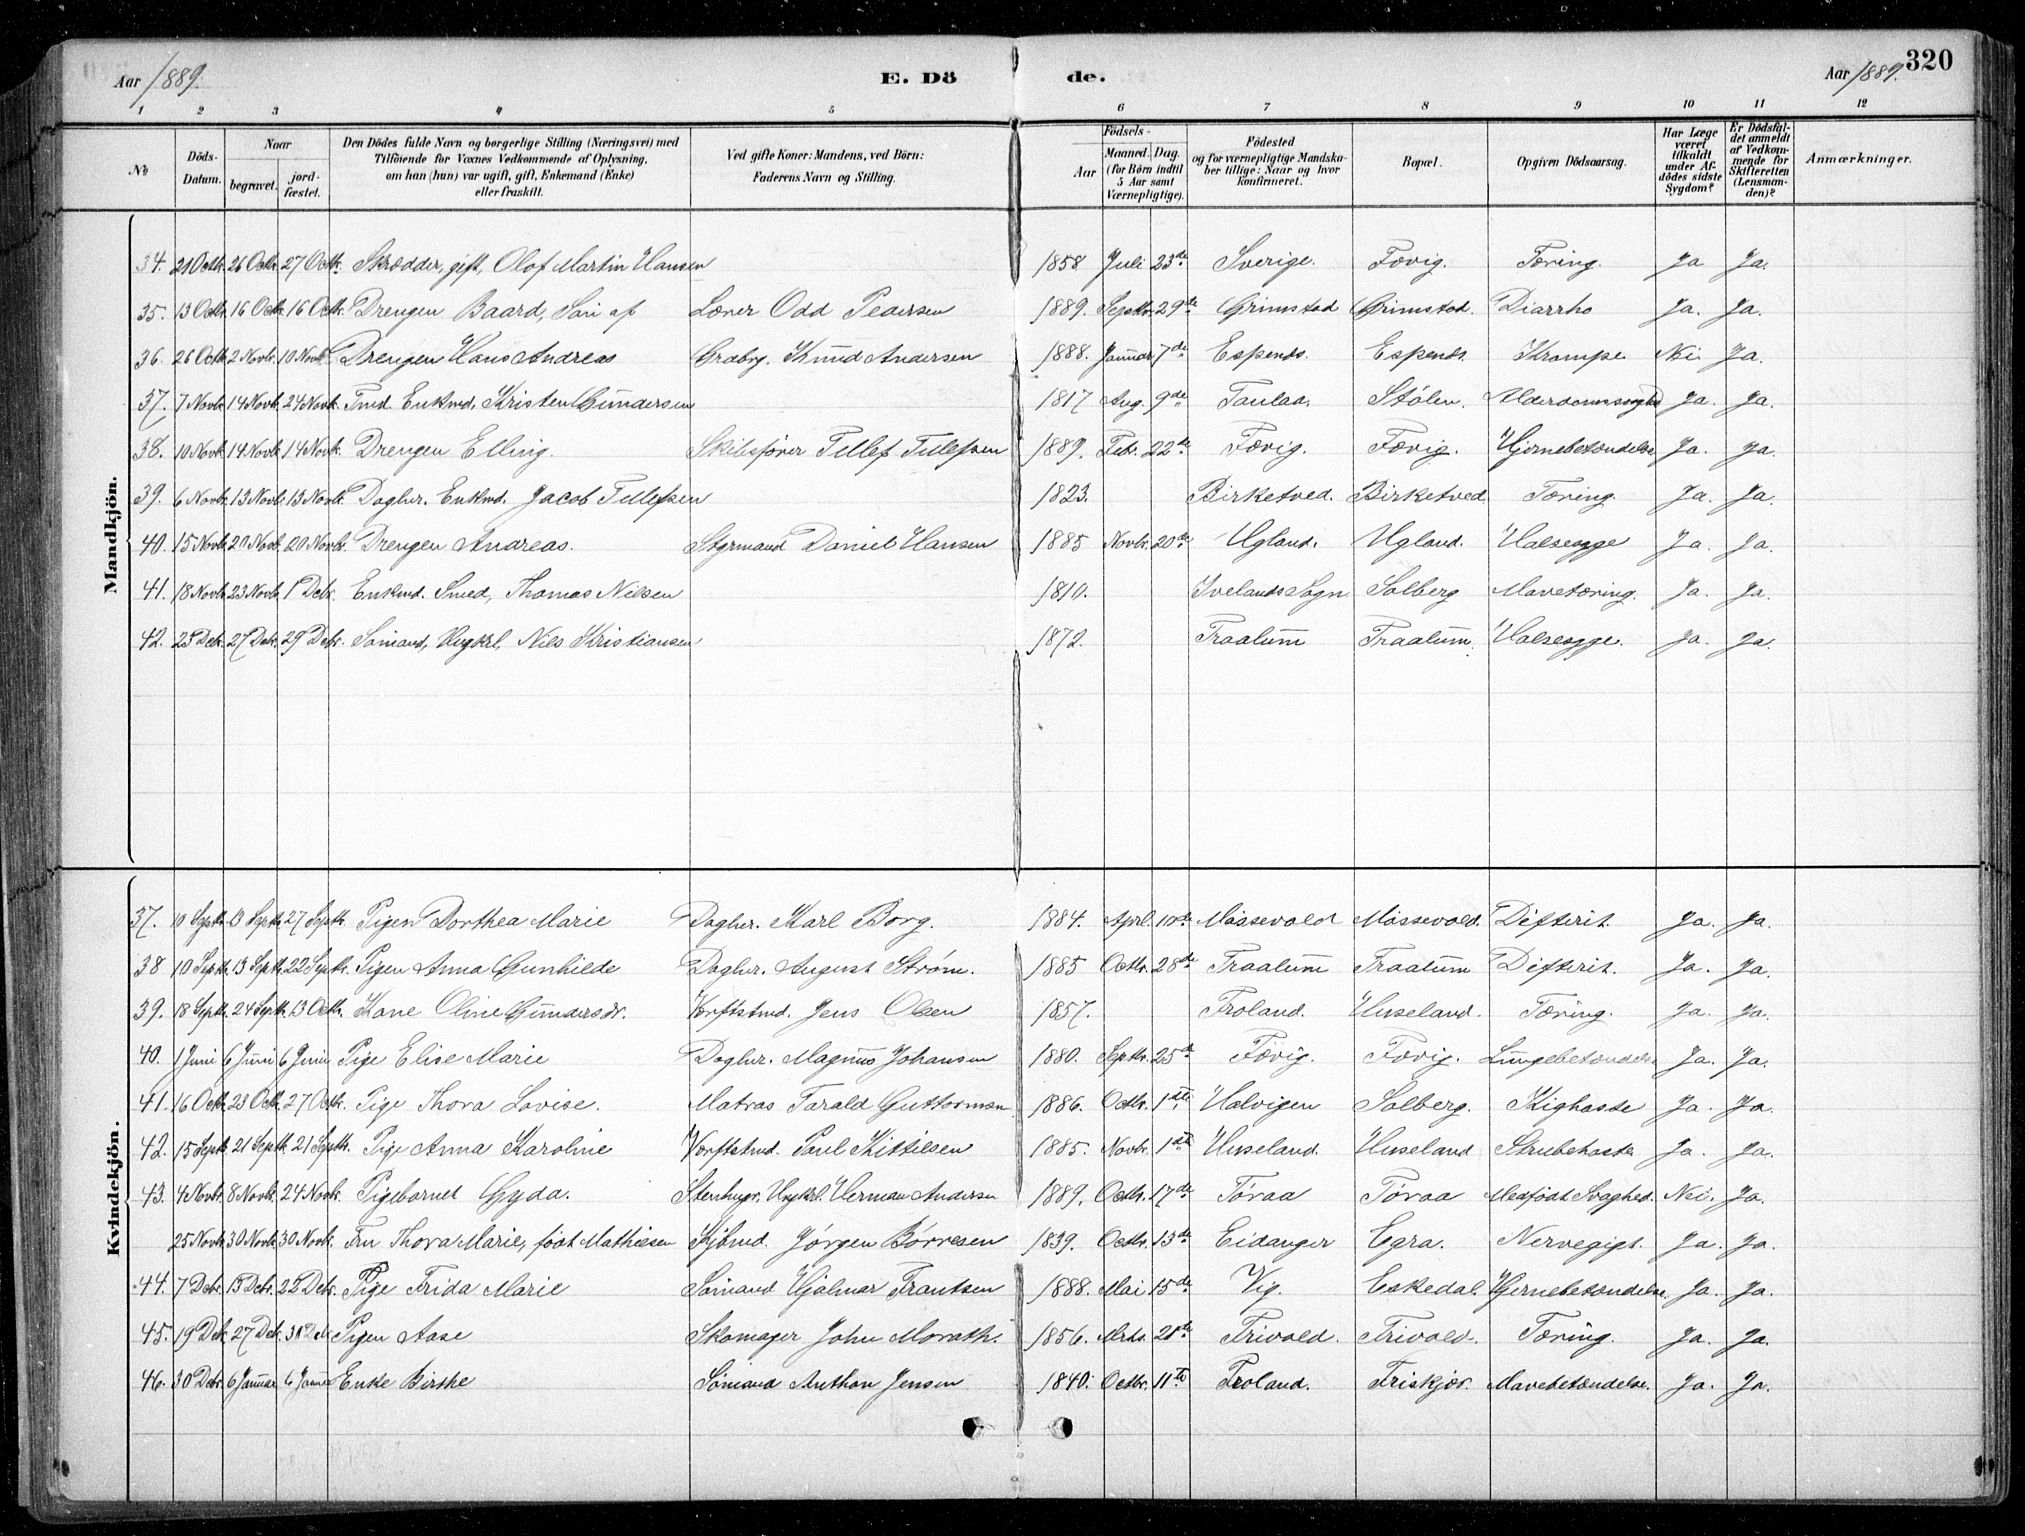 Aar 1889. E. Dö de. Aar 1889. 320
1 2 3 4 5 6 7 8 9 10 11 12
No Döds-Datum. Naar begravet. jord-fæstet. Den Dödes fulde Navn og borgerlige Stilling (Næringsvei) med Tilföiende for Voxnes Vedkommende af Oplysning, om han (hun) var ugift, gift, Enkemand (Enke) eller fraskilt. Ved gifte Koner: Mandens, ved Börn: Faderens Navn og Stilling. Födsels- Aar Maaned. Dag. (for Börn indtil 5 Aar samt Værnepligtige). Födested og for værnepligtige Mandska-ber tillige: Naar og hvor konfirmeret. Bopæl. Opgiven Dödsaarsag. Har Læge været tilkaldt under Af-dödes sidste Sygdom? Er Dödsfal-det anmeldt af Vedkom-mende for Skifteretten (Lensman-den)? Anmærkninger.
Mandkjön.
34. 21 Octb. 26 Octb. 27 Octb. Skrædder, gift, Olof Martin Hansen 1858 Juli 23de Sverige. Fævig. Tæring. Ja Ja.
35. 13 Octb. 16 Octb. 16 Octb. Drengen Baard, Søn af Lærer Odd Pedersen 1889. Septbr. 29de Grimstad Grimstad. Diarrho Ja. Ja.
36. 26 Octb. 2 Novb. 10 Novb. Drengen Hans Andreas Grdbrg. Knud Andersen 1888. Januar 7de Espends. Espends. Krampe Nei Ja.
37. 7 Novb. 14 Novb. 24 Novb. Enkmd, Kristen Gundersen 1817 Aug. 9de Taulaa. Stølen. Ja. Ja.
38. 10 Novb. 14 Novb. 14 Novb. Drengen Elling. Skibsfører Tellef Tellefsen 1889. Feb. 22de Fævig. Fævig. Hjernebetændelse Ja. Ja.
39. 6 Novb. 13 Novb. 13 Novb. Daglnr. Enkmd. Jacob Tellefsen 1823. Birketved. Birketved. Tæring. Ja. Ja.
40. 15 Novb. 20 Novb. 20 Novb. Drengen Andreas. Styrmand Daniel Hansen 1885 Novbr. 20de Ugland. Ugland. Halsesyge Ja. Ja.
41. 18 Novb. 23 Novb. 1 Debr. Enkmd. Smed, Thomas Nilsen 1810. Ivelands Sogn Solberg Mavetæring. Ja. Ja.
42. 23 Debr. 27 Debr. 29 Debr. Sømand, Ungkrl. Nils Kristiansen 1872. Traalum Traalum. Halsesyge. Ja. Ja.
Kvindekjön.
37. 10 Septb. 13 Septb. 27 Septb. Pigen Dorthea Marie Daglnr. Karl Borg. 1884. Aprl. Møssevold Møssevold. Difterit. Ja. Ja.
38 10 Septb. 13 Septb. 22 Septb. Pigen Anna Gunhilde Daglnr. August Strøm. 1885 Octb. 28de Traalum Traalum Difterit. Ja. Ja.
39. 18 Septb. 24 Septb. 13 Octb. Kone Oline Gundersdr. Værftstmd. Jens Olsen 1857. Froland. Huseland. Tæring. Ja. Ja.
40. 1 Juni 6 Juni 6 Juni Pige Elise Marie Daglnr. Magnus Johansen 1880. Septbr. 25de Fævig. Fævig. Lungebetændelse Ja. Ja.
41. 16 Octb. 23 Octb. 27 Octb. Pige Thora Lovise. Matros Tarald Guttorman 1886. Octb. 1ste Halvigen Solberg. Kighoste Ja. Ja.
42. 15 Septb. 21 Septb. 21 Septb. Pige Anna Karoline Værftstmd. Paul Kittilsen 1885. Novbr. 1ste Huseland. Huseland Strubehoste Ja. Ja.
43. 4 Novb. 8 Novb. 24 Novb. Pigebarnet Gyda. Stenhugr. Ungkrl. Herman Andersen 1889. Octb. 17de Tøraa Tøraa Medfødt Svaghed. Nei. Ja.
25 Novb. 30 Novb. 30 Novb. Fru Thora Marie, født Mathiesen Kjbmd. Jørgen Børresen 1839. Octb. 13de Eidanger Egra. Nervegigt. Ja. Ja.
44. 7 Debr. 13 Debr. 22 Debr. Pige Frida Marie Sømand Hjalmar Frantsen 1888. Mai 15de Vig. Eskedal. Hjernebetændelse. Ja. Ja.
45. 19 Deb. 27 Deb. Pigen Aase Skomager John Morath. 1856. Mrds. Trivold. Trivold. Tæring. Ja. Ja.
46. 30 Debr. 6 Januar 6 Januar Enke Birthe Sømand Anthon Jensen 1840. Octbr. 11te Froland. Friskjær. Mavebetændelse. Ja. Ja.